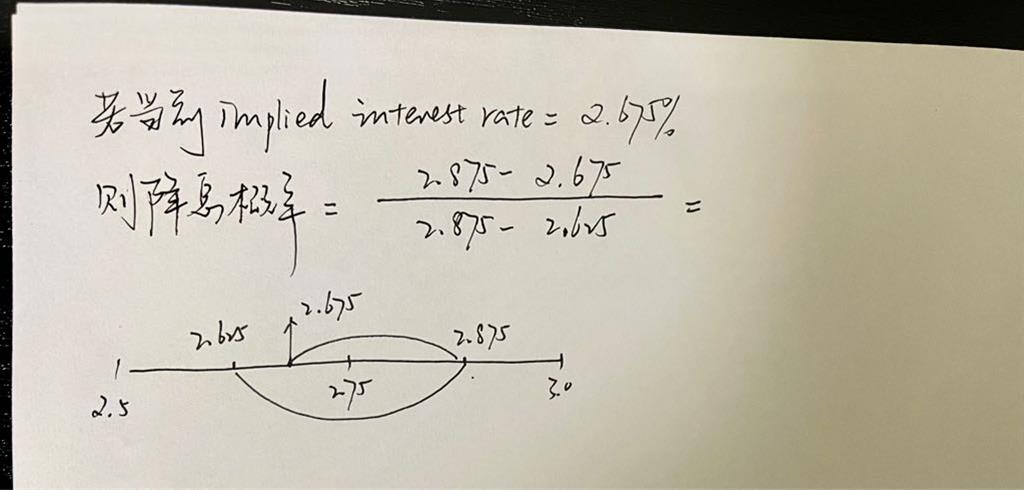 若当前 implied interest rate = 2.675%
则降息概率 = 2.875 - 2.675
2.875 - 2.625 =
2.675
2.625 2.875
2.5 2.75 3.0